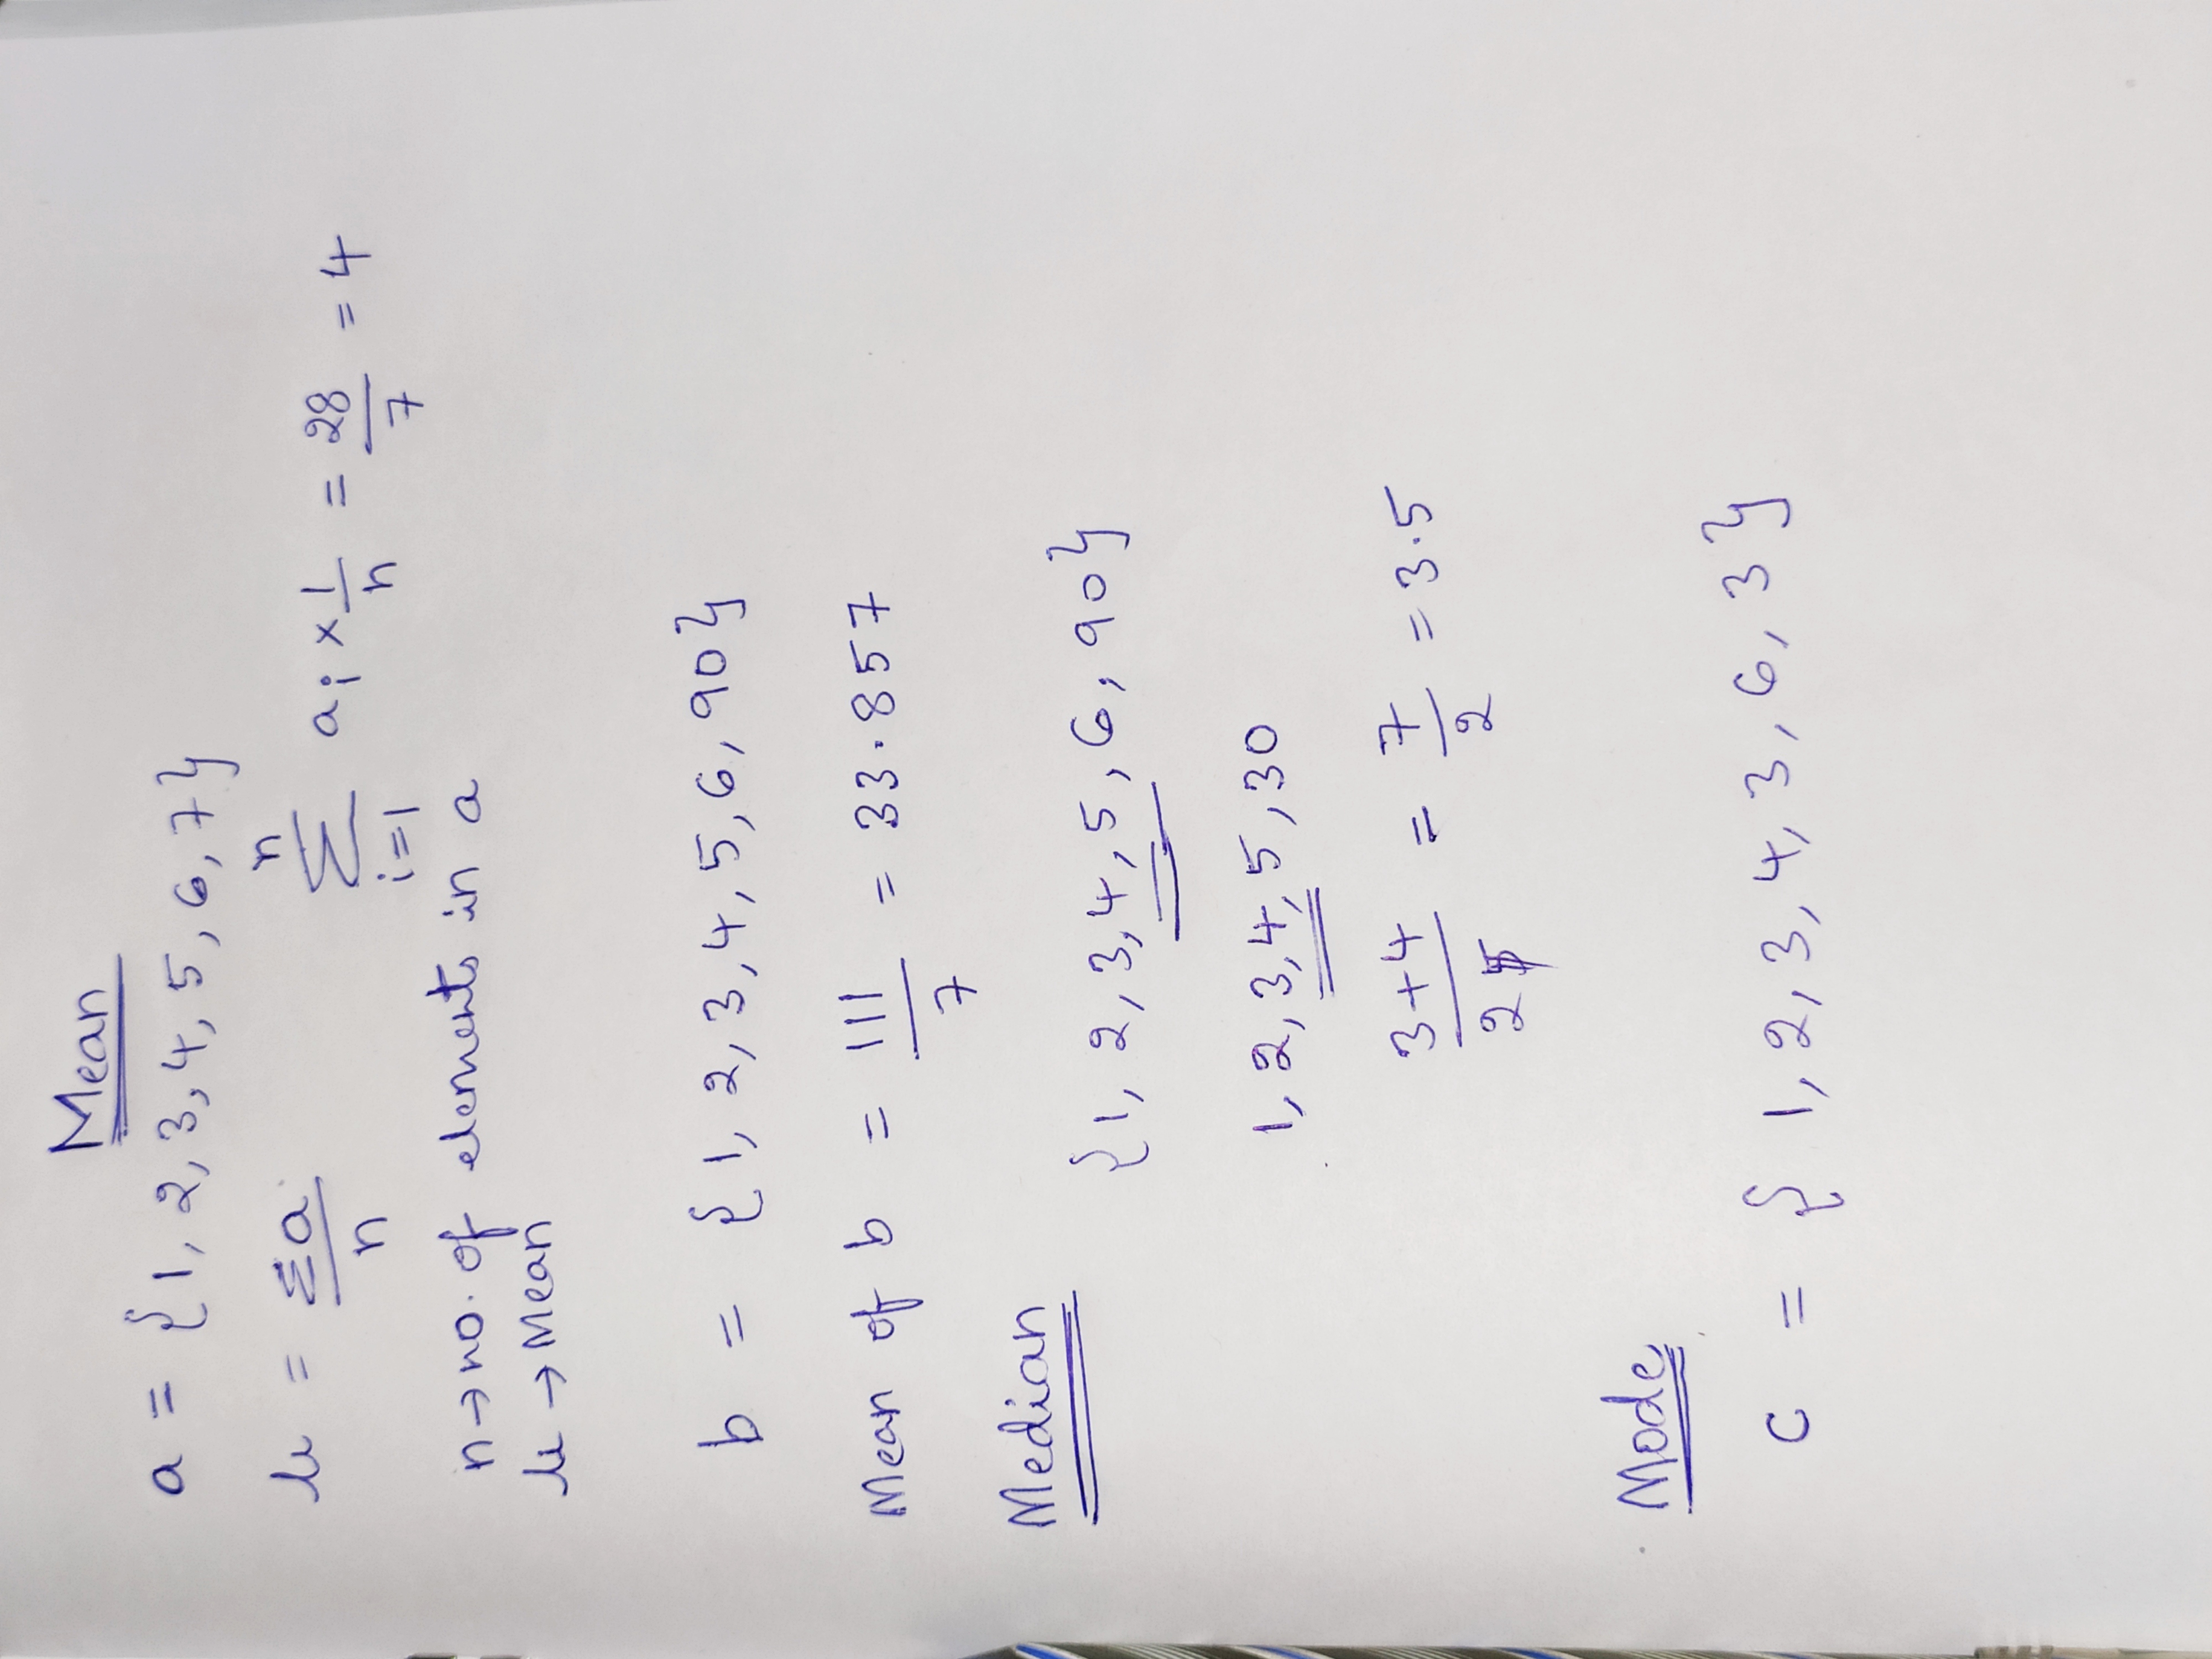 Mean
a = {1, 2, 3, 4, 5, 6, 7}
μ = Σa/n    n Σ i=1 aᵢ × 1/n = 28/7 = 4
n → no. of elements in a
μ → Mean
b = {1, 2, 3, 4, 5, 6, 90}
Mean of b = 111/7 = 33.857
Median
{1, 2, 3, 4, 5, 6, 90}
1, 2, 3, 4, 5, 30
3+4/2 = 7/2 = 3.5
Mode
c = { 1, 2, 3, 4, 3, 6, 3}